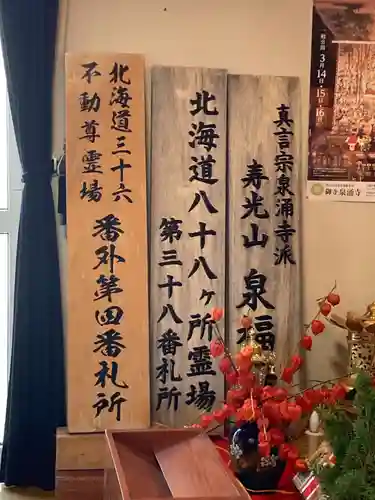 真言宗泉涌寺派
寿光山 泉福
北海道八十八ヶ所霊場
第三十八番札所
北海道三十六
不動尊霊場
番外第四番札所
3月14・15・16
御寺泉涌寺